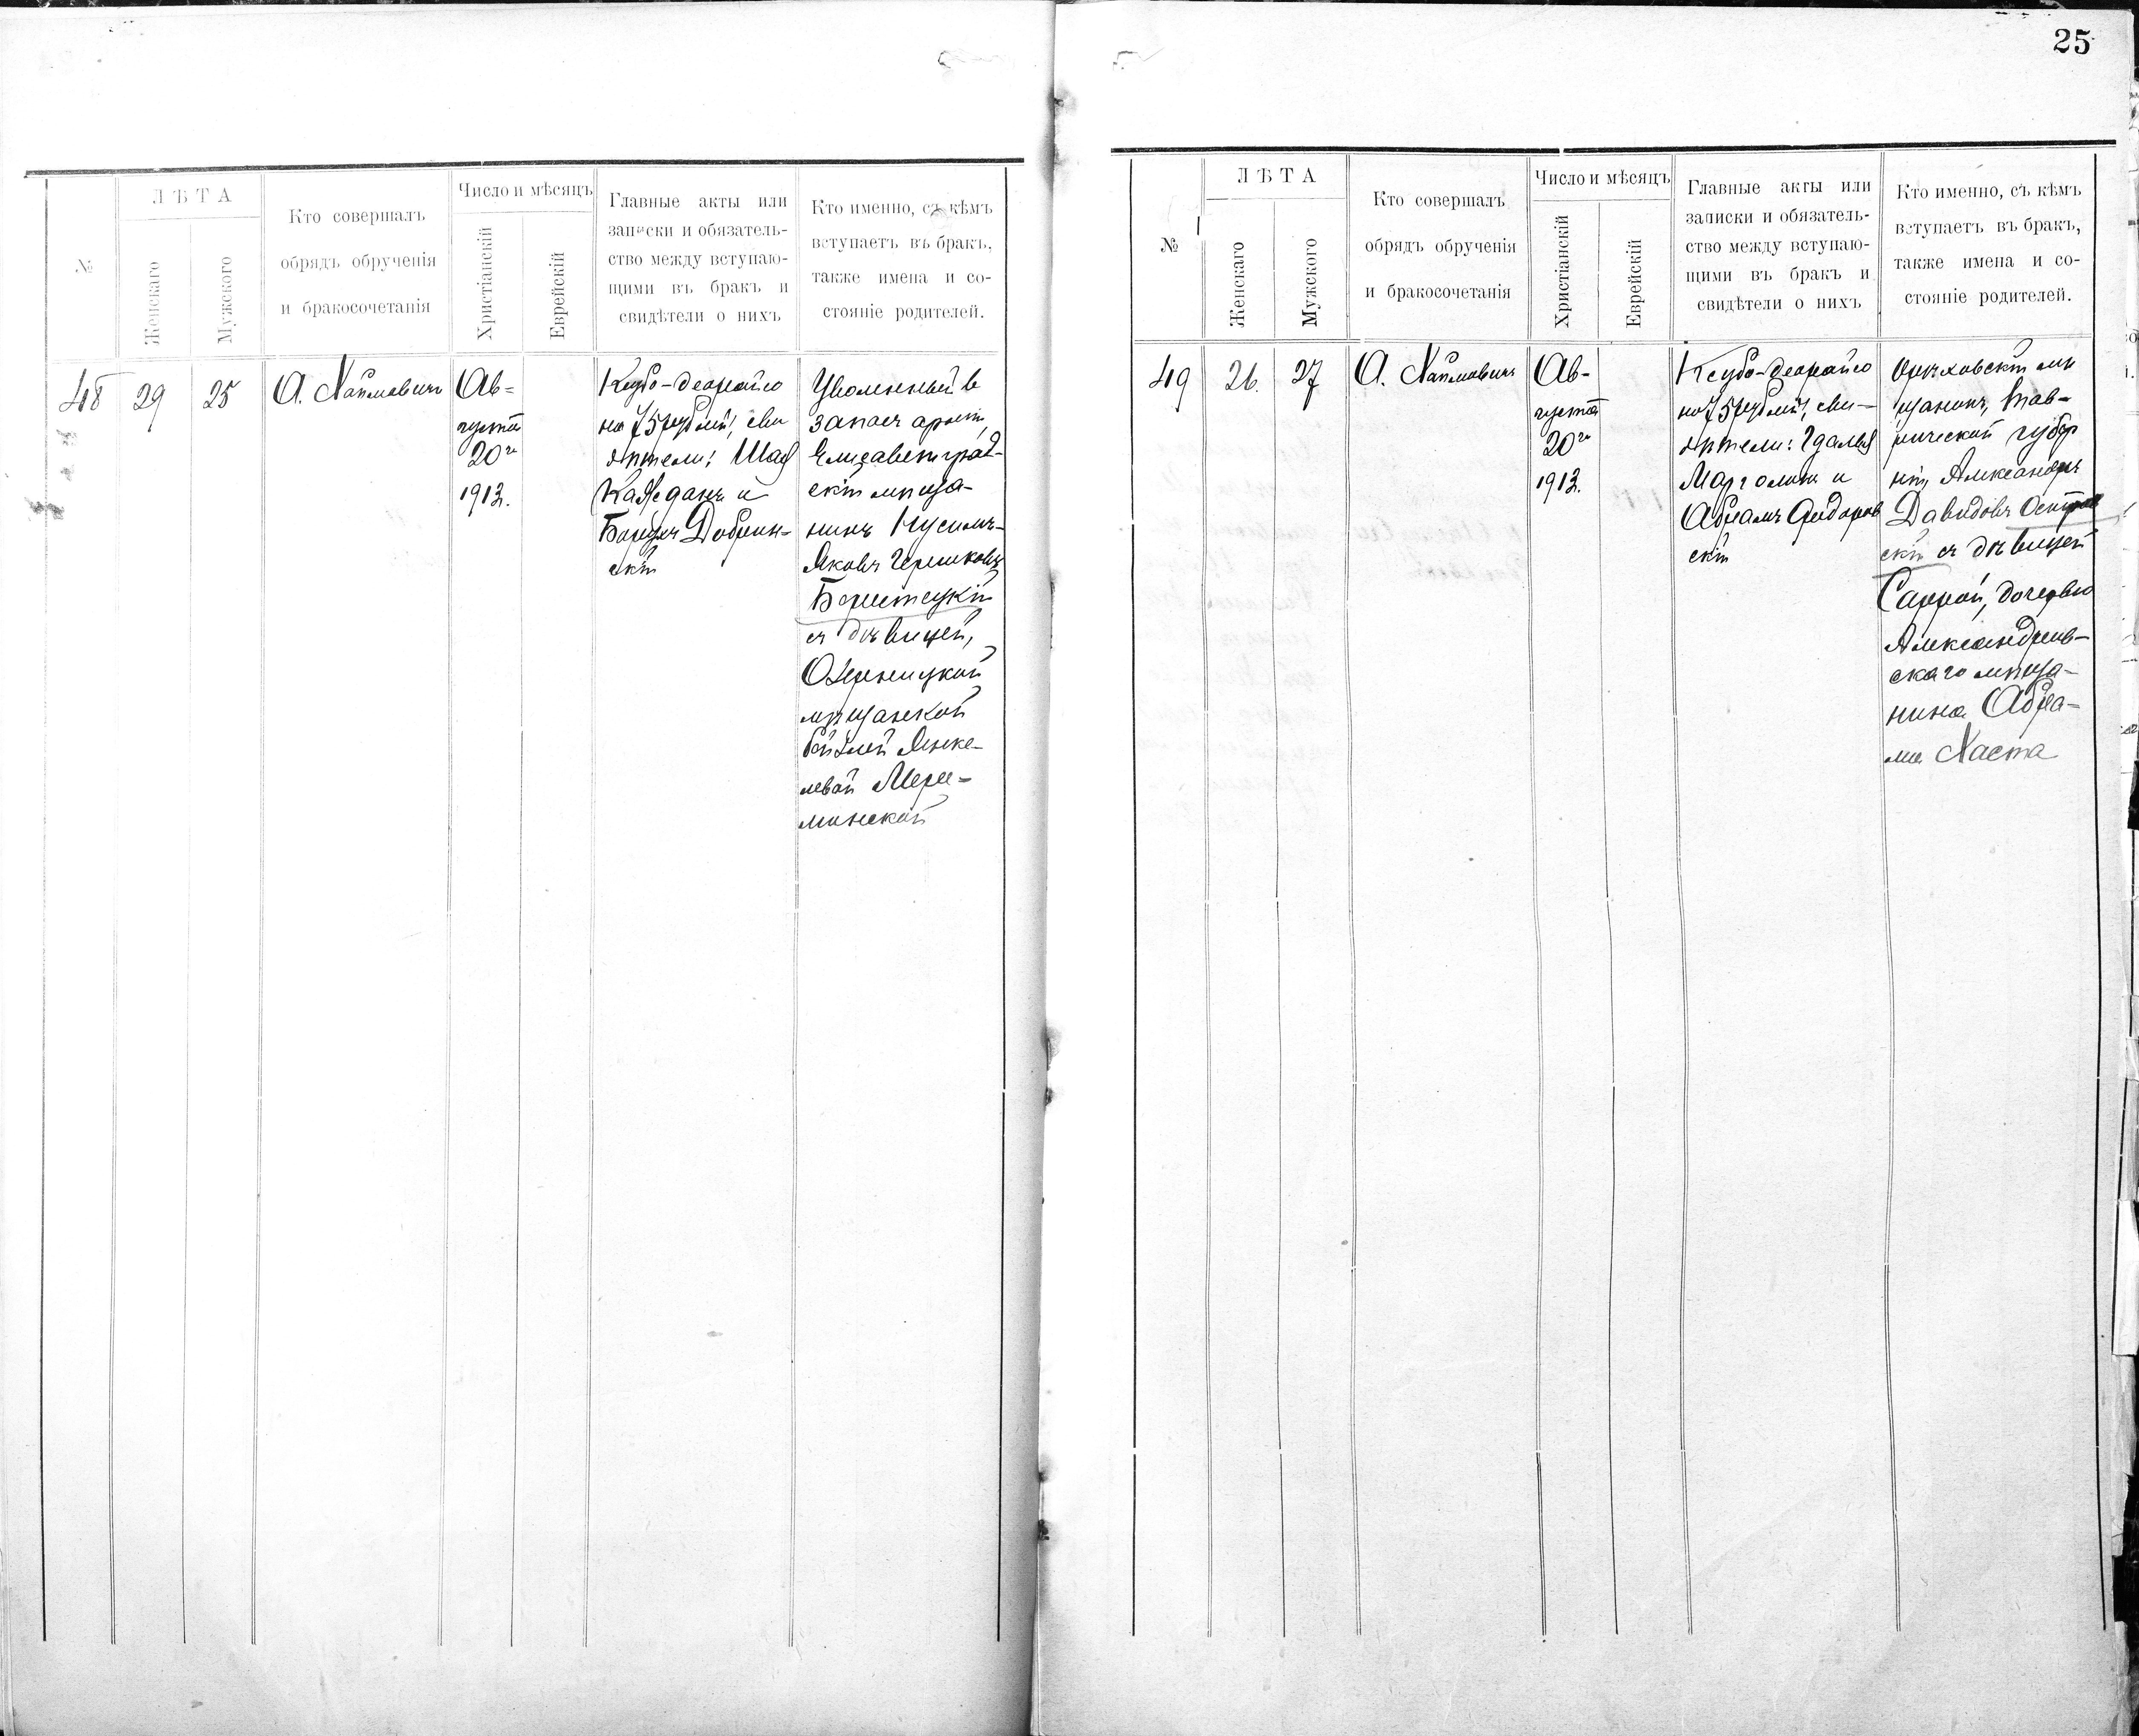 25
№
ЛѢТА
Женскаго
Мужского
Кто совершалъ
обрядъ обрученія
и бракосочетанія
Число и мѣсяцъ
Христіанскій
Еврейскій
Главные акты или
записки и обязатель-
ство между вступаю-
щими въ бракъ и
свидѣтели о нихъ
Кто именно, съ кѣмъ
вступаетъ въ бракъ,
также имена и со-
стояніе родителей.
48
29
25
А. Хаймовичъ
Ав-
густа
20го
1913.
Ксубо-деорайсо
на 75 рублей, сви
дѣтели: Шая
и
Борухъ Добрин-
скій
Уволенный в
запасъ арміи,
Елисаветград-
скій мѣща-
нинъ Нусимъ-
Яковъ Гершковъ
съ дѣвицей,
мѣщанской
Бейлей Янке-
левой Мере-
минской
№
ЛѢТА
Женскаго
Мужского
Кто совершалъ
обрядъ обрученія
и бракосочетанія
Число и мѣсяцъ
Христіанскій
Еврейскій
Главные акты или
записки и обязатель-
ство между вступаю-
щими въ бракъ и
свидѣтели о нихъ
Кто именно, съ кѣмъ
вступаетъ въ бракъ,
также имена и со-
стояніе родителей.
49
26.
27
А. Хаймовичъ
Ав-
густа
20го
1913.
Ксубо-деорайсо
на 75 рублей, сви-
дѣтели: Гдалья
Марголинъ и
Абрамъ Сидоров
скій
Орѣховскій мѣ
щанинъ, Тав-
рической губер
ніи, Александръ
Давидовъ Остров
скій съ дѣвицей
Саррой, дочерью
Александров-
скаго мѣща-
нина Абра-
ма Хаста